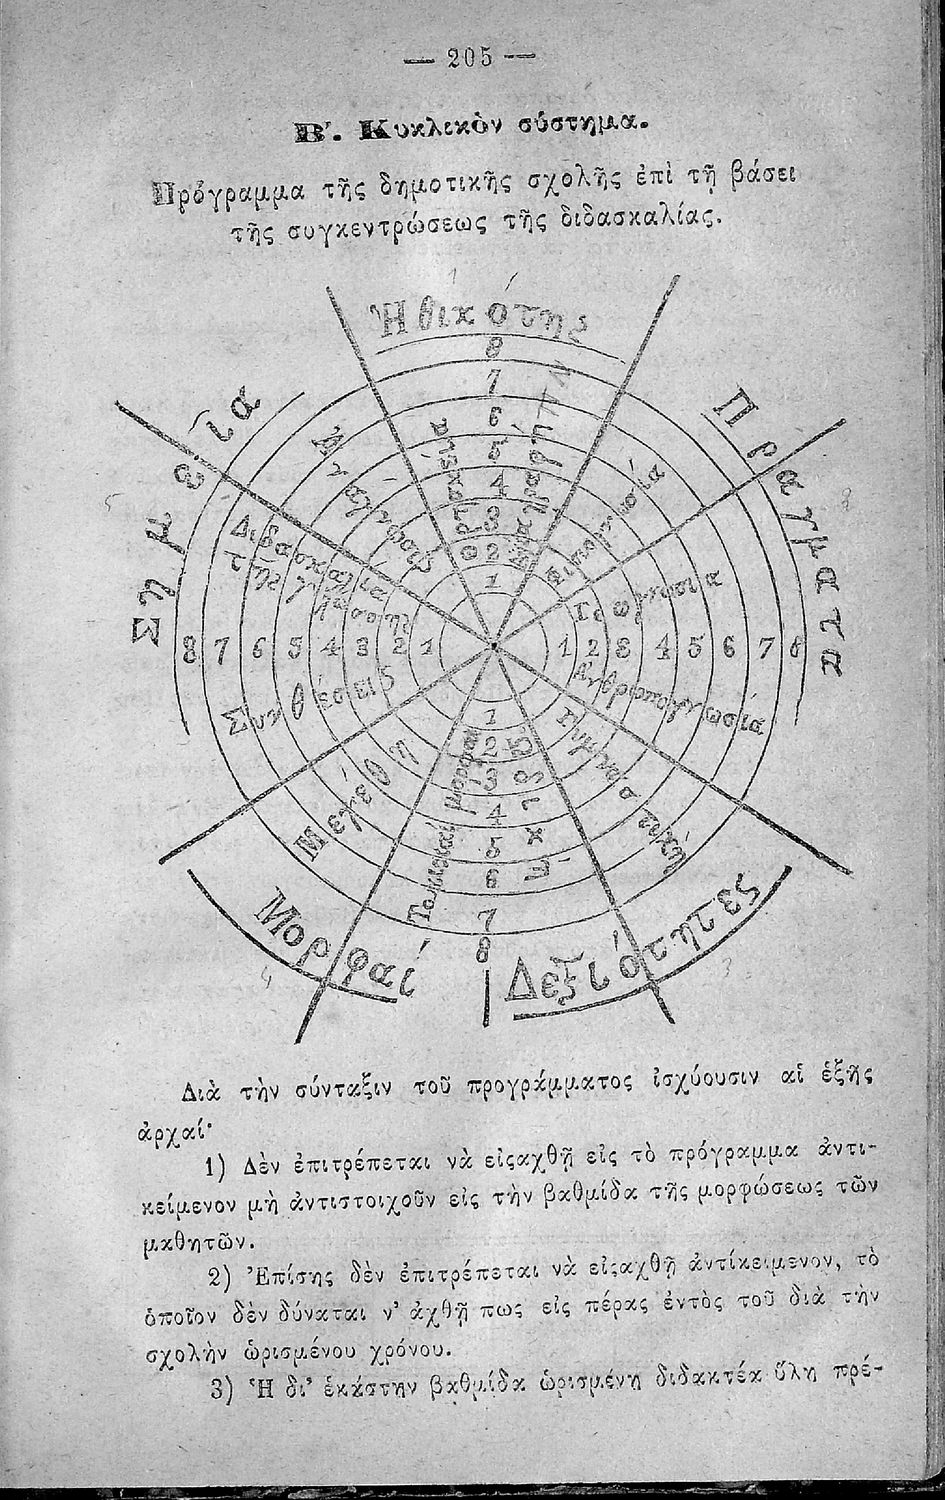 — 205 —
Β′. Κυκλικὸν σύστημα.
Πρόγραμμα τῆς δημοτικῆς σχολῆς ἐπὶ τῇ βάσει
τῆς συγκεντρώσεως τῆς διδασκαλίας.
Ἠθικότης
Πράγματα
Δεξιότητες
Μορφαί
Σημεῖα
Θρησκεία
Φυσιογνωσία
Γεωγνωσία
Ἀνθρωπογνωσία
Γυμναστική
Τονικαί μορφαί
Μεγέθη
Συνθέσεις
Διδασκαλία
τῆς γλώσσης
Ἀνάγνωσις
8 7 6 5 4 3 2 1
8 7 6 5 4 3 2 1 1 2 3 4 5 6 7 8
1 2 3 4 5 6 7 8
Διὰ τὴν σύνταξιν τοῦ προγράμματος ἰσχύουσιν αἱ ἑξῆς
ἀρχαί·
1) Δὲν ἐπιτρέπεται νὰ εἰςαχθῇ εἰς τὸ πρόγραμμα ἀντι-
κείμενον μὴ ἀντιστοιχοῦν εἰς τὴν βαθμίδα τῆς μορφώσεως τῶν
μαθητῶν.
2) Ἐπίσης δὲν ἐπιτρέπεται νὰ εἰςαχθῇ ἀντίκειμενον, τὸ
ὁποῖον δὲν δύναται ν' ἀχθῇ πως εἰς πέρας ἐντὸς τοῦ διὰ τὴν
σχολὴν ὡρισμένου χρόνου.
3) Ἡ δι' ἑκάστην βαθμίδα ὡρισμένη διδακτέα ὕλη πρέ-